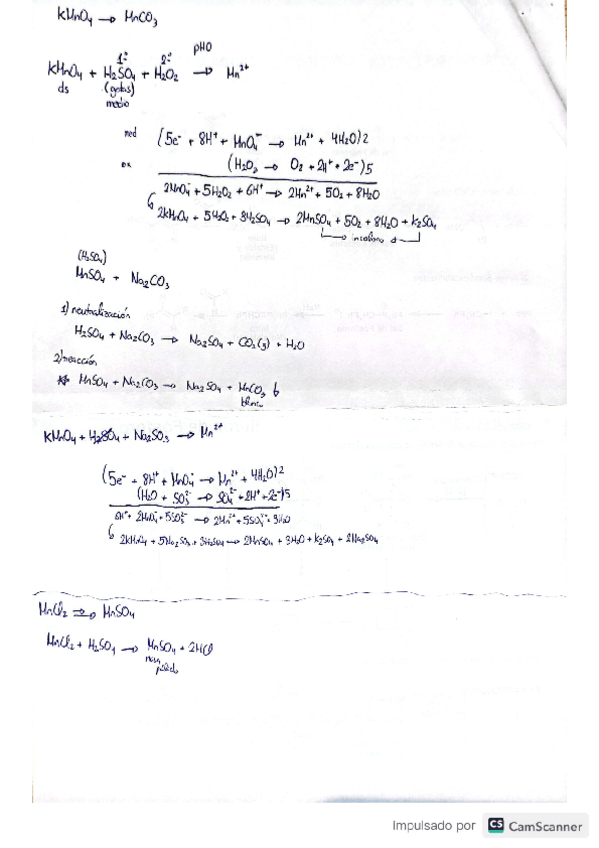 KMnO4 → MnCO3
1º 2º pH0
KMnO4 + H2SO4 + H2O2 → Mn²⁺
ds (gotas)
medio
red (5e⁻ + 8H⁺ + MnO4⁻ → Mn²⁺ + 4H2O)2
ox (H2O2 → O2 + 2H⁺ + 2e⁻)5
2MnO4⁻ + 5H2O2 + 6H⁺ → 2Mn²⁺ + 5O2 + 8H2O
2KMnO4 + 5H2O2 + 3H2SO4 → 2MnSO4 + 5O2 + 8H2O + K2SO4
incoloro
(H2SO4)
MnSO4 + Na2CO3
1) neutralización
H2SO4 + Na2CO3 → Na2SO4 + CO2(g) + H2O
2) reacción
MnSO4 + Na2CO3 → Na2SO4 + MnCO3 ↓
blanco
KMnO4 + H2SO4 + Na2SO3 → Mn²⁺
(5e⁻ + 8H⁺ + MnO4⁻ → Mn²⁺ + 4H2O)2
(H2O + SO3²⁻ → SO4²⁻ + 2H⁺ + 2e⁻)5
6H⁺ + 2MnO4⁻ + 5SO3²⁻ → 2Mn²⁺ + 5SO4²⁻ + 3H2O
2KMnO4 + 5Na2SO3 + 3H2SO4 → 2MnSO4 + 3H2O + K2SO4 + Na2SO4
MnCl2 → MnSO4
MnCl2 + H2SO4 → MnSO4 + 2HCl
rosa
pálido
Impulsado por CS CamScanner